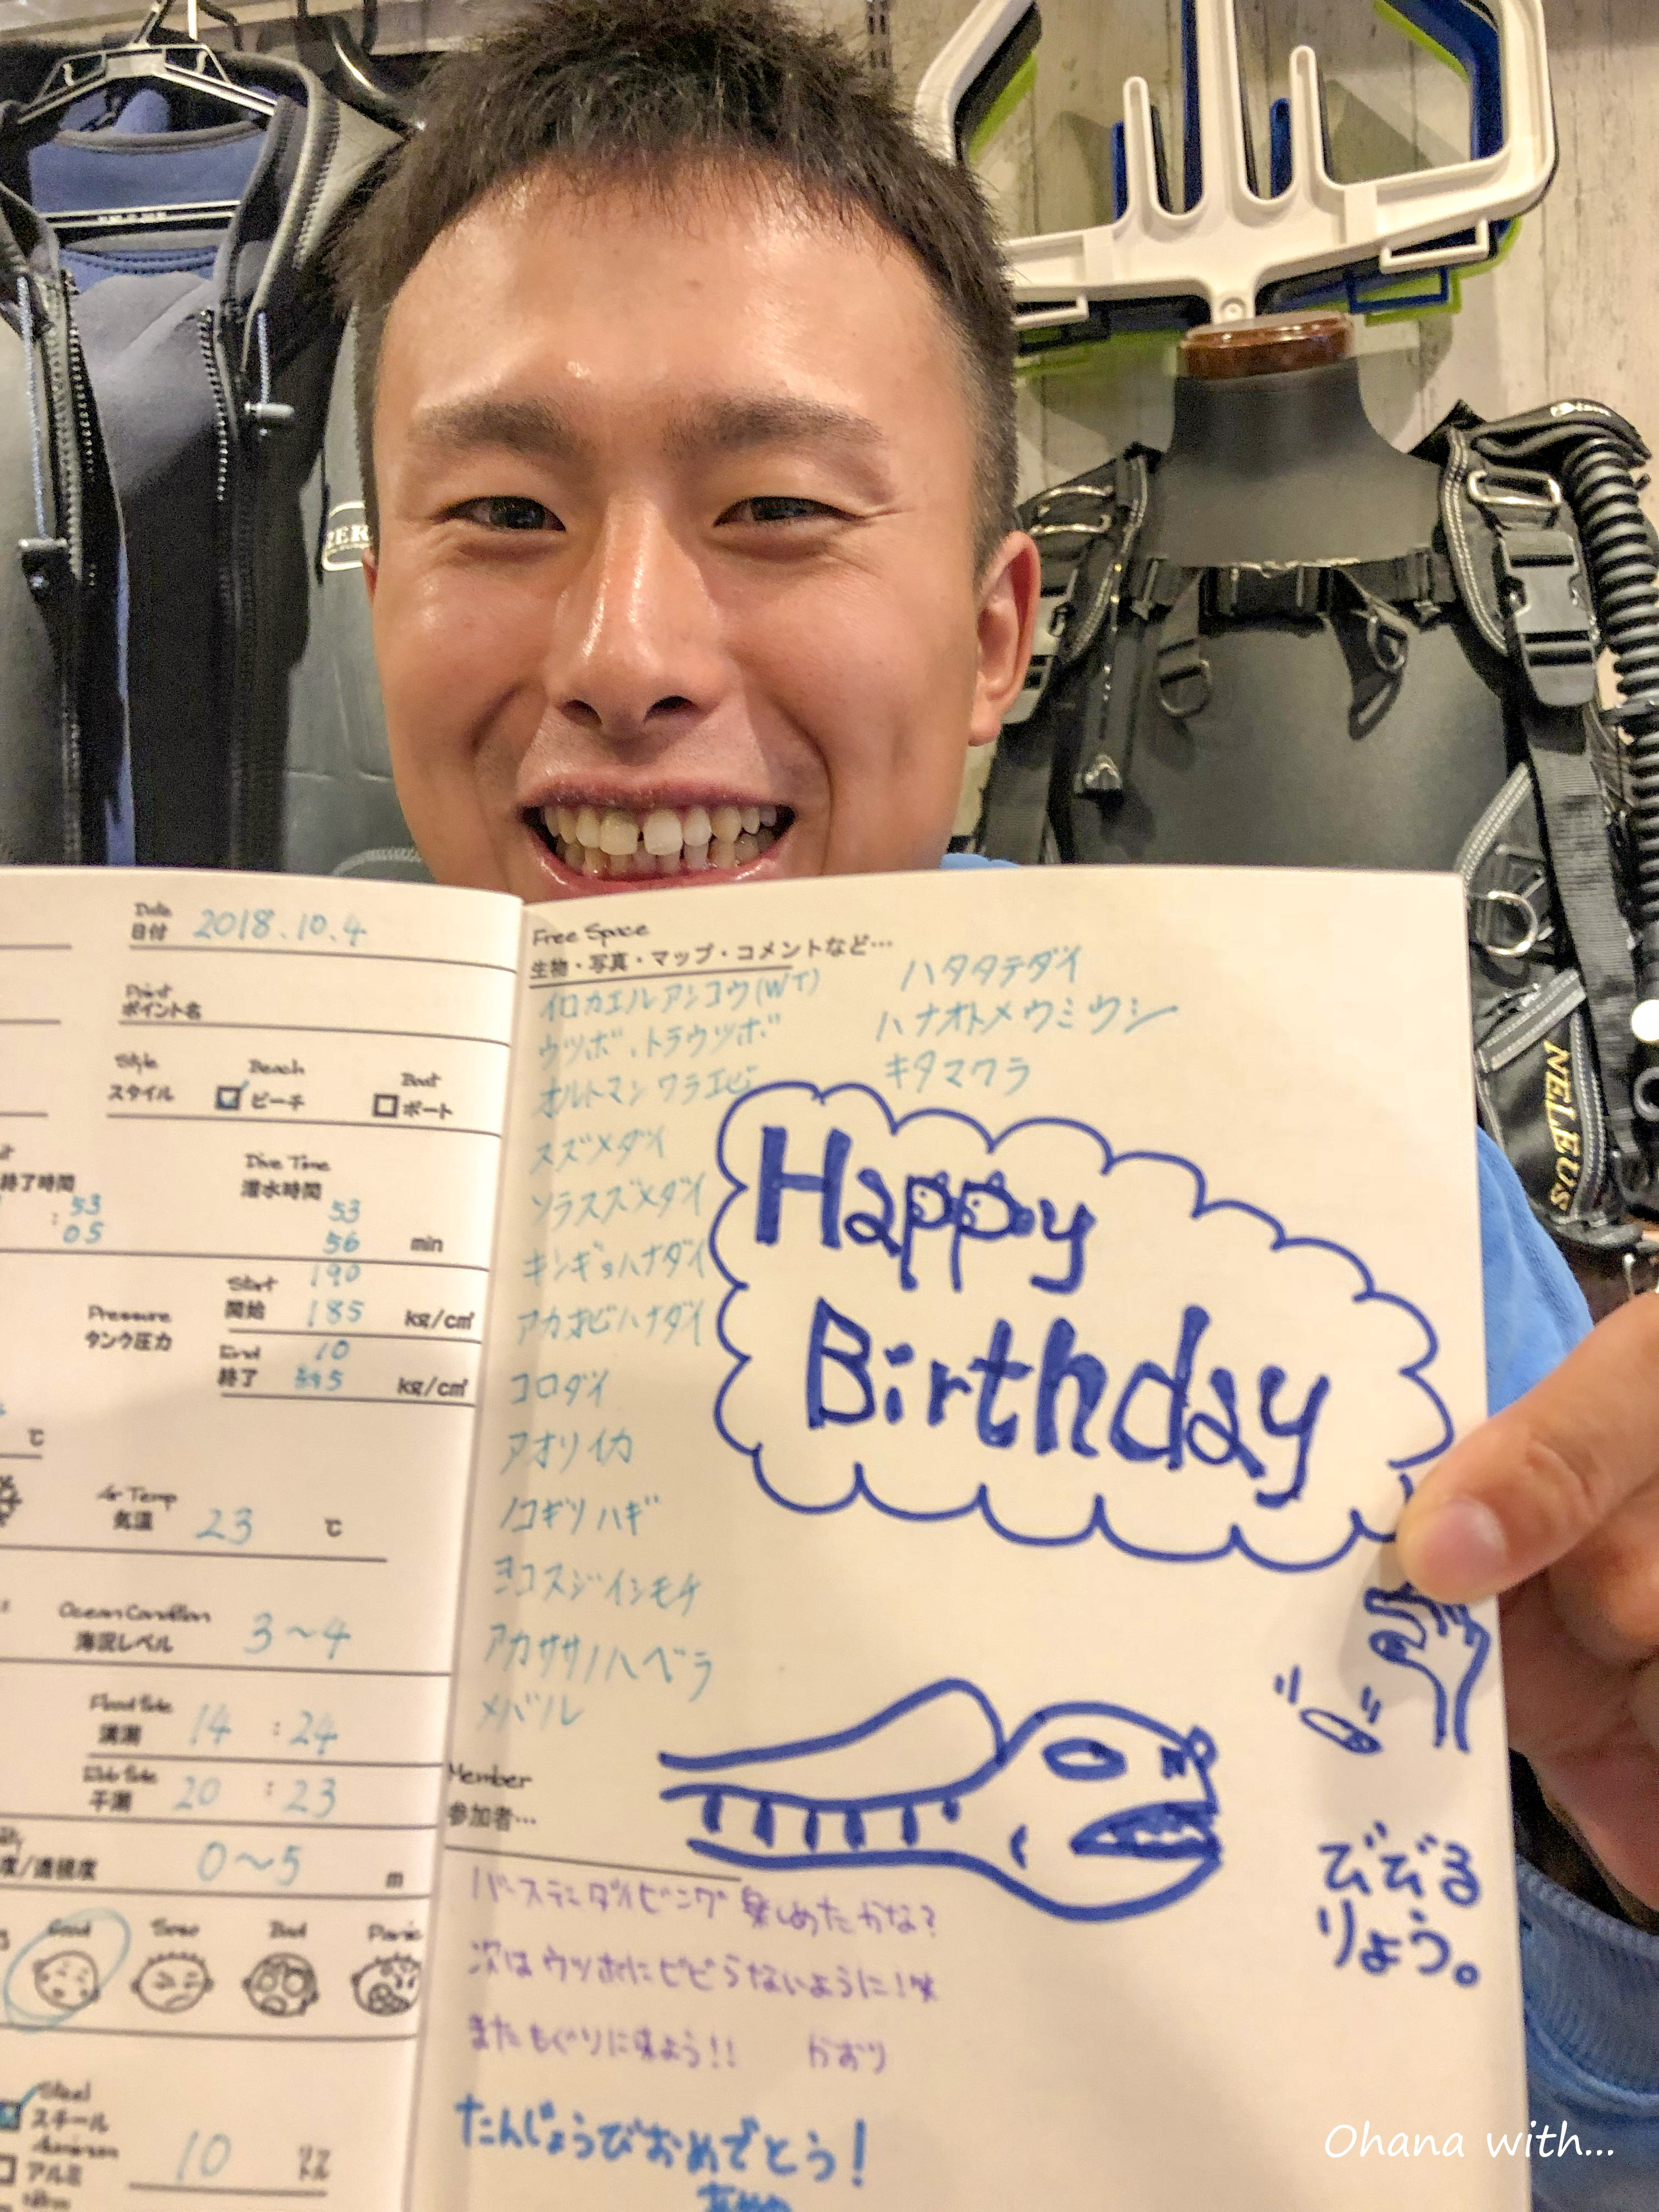 Date
日付 2018.10.4
Point
ポイント名
Style
スタイル
Beach
ビーチ
Boat
ボート
終了時間
: 53
05
Dive Time
潜水時間
53
56 min
Pressure
タンク圧力
Start
開始
190
185 kg/c㎡
End
終了
10
5 kg/c㎡
℃
Air Temp
気温 23 ℃
Ocean Condition
海況レベル 3~4
Flood tide
満潮 14 : 24
Ebb tide
干潮 20 : 23
度/透視度 0~5 m
Good Soso Bad Panic
Steel
スチール
アルミ
10
Free Space
生物・写真・マップ・コメントなど…
イロカエルアンコウ(WT)
ウツボ、トラウツボ
オルトマンワラエビ
スズメダイ
ソラスズメダイ
キンギョハナダイ
アカオビハナダイ
コロダイ
アオリイカ
ノコギリハギ
ヨコスジイシモチ
アカササノハベラ
メバル
ハタタテダイ
ハナオトメウミウシ
キタマクラ
Happy
Birthday
びびる
りょう。
Member
参加者…
バースデーダイビング楽しめたかな?
次はウツボにビビらないように!
またもぐりに来よう!! かおり
たんじょうびおめでとう!
NELEUS
Ohana with...